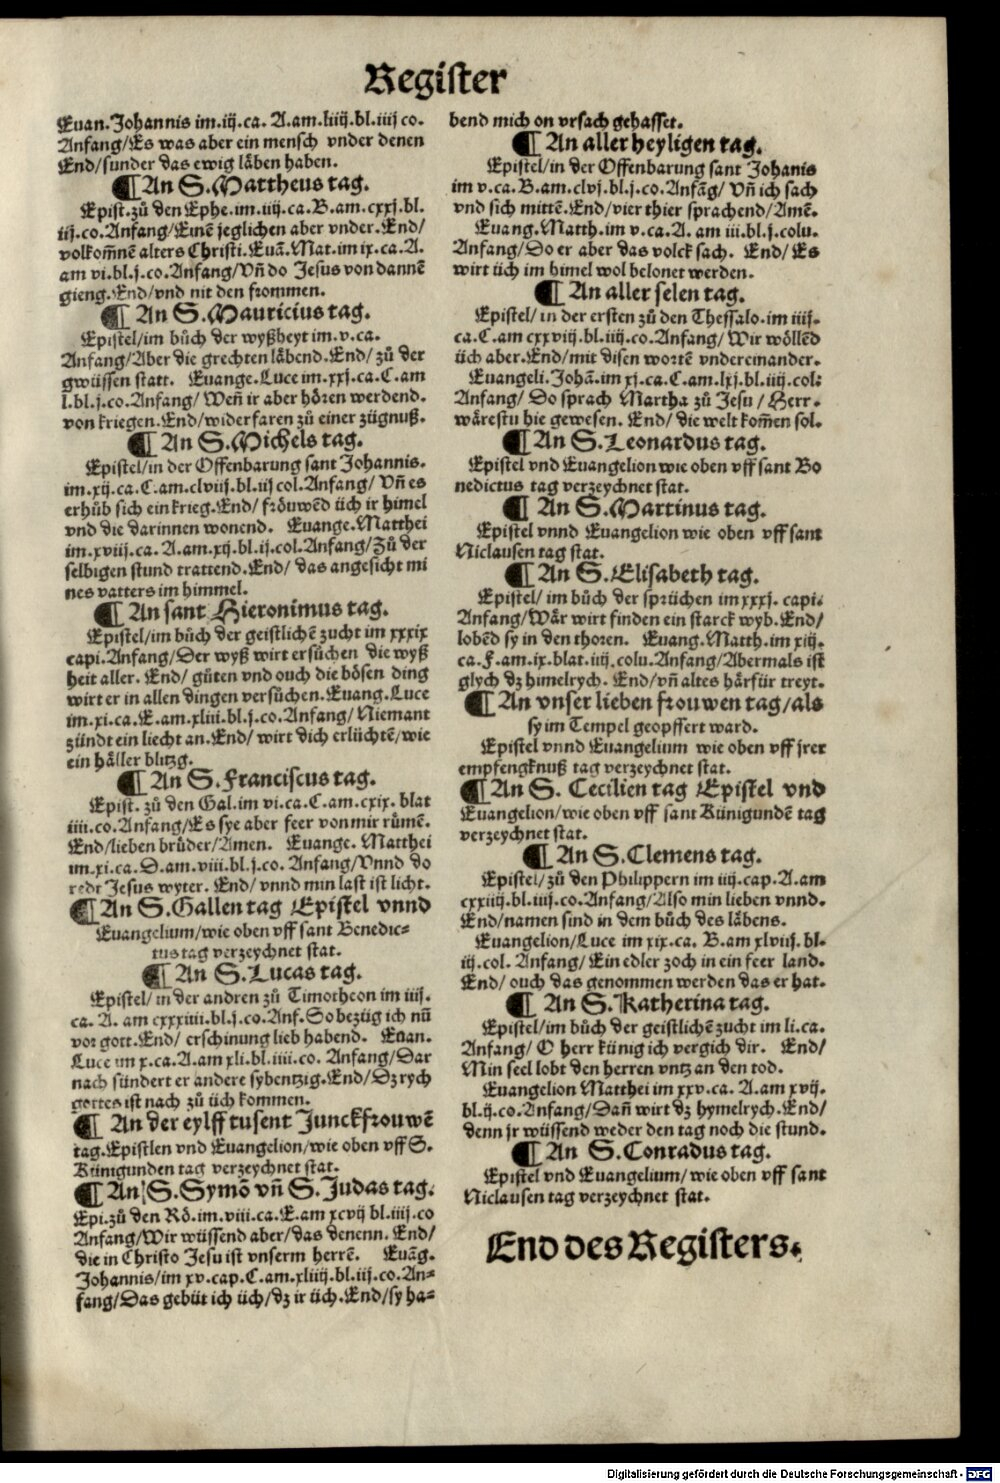 Register
Euan. Johannis im.iij.ca. A.am.liiij.bl.iiij co.
Anfang/Es was aber ein mensch vnder denen
End/sunder das ewig läben haben.
¶ An S. Mattheus tag.
Epist. zů den Ephe.im.iiij.ca.B.am.cxxj.bl.
iij.co.Anfang/Einē jeglichen aber vnder.End/
volkom̄nē alters Christi.Euā.Mat.im ix.ca.A.
am vi.bl.j.co.Anfang/Vn̄ do Jesus von dannē
gieng.End/vnd nit den frommen.
¶ An S. Mauricius tag.
Epistel/im bůch der wyßheyt im.v.ca.
Anfang/Aber die grechten läbend.End/ zů der
gwüssen statt. Euange.Luce im.xxj.ca.C.am
l.bl.j.co.Anfang/ Wen̄ ir aber hören werdend.
von kriegen.End/widerfaren zů einer zügnuß.
¶ An S. Michels tag.
Epistel/in der Offenbarung sant Johannis.
im.xij.ca.C.am.clviij.bl.iij col.Anfang/ Vn̄ es
erhůb sich ein krieg.End/ fröuwēd üch ir himel
vnd die darinnen wonend. Euange.Matthei
im.xviij.ca. A.am.xij.bl.ij.col.Anfang/Zů der
selbigen stund trattend.End/ das angesicht mi
nes vatters im himmel.
¶ An sant Hieronimus tag.
Epistel/im bůch der geistlichē zucht im xxxix
capi.Anfang/Der wyß wirt ersůchen die wyß
heit aller. End/ gůten vnd ouch die bösen ding
wirt er in allen dingen versůchen.Euang.Luce
im.xi.ca.E.am.xliii.bl.j.co.Anfang/ Niemant
zündt ein liecht an.End/ wirt dich erlüchtē/wie
ein häller blitzg.
¶ An S. Franciscus tag.
Epist. zů den Gal.im vi.ca.C.am.cxix. blat
iiii.co.Anfang/Es sye aber feer von mir růmē.
End/lieben brůder/Amen. Euange. Matthei
im.xi.ca.D.am.viii.bl.j.co. Anfang/Vnnd do
redt Jesus wyter. End/ vnnd min last ist licht.
¶ An S. Gallen tag Epistel vnnd
Euangelium/wie oben vff sant Benedic=
tus tag verzeychnet stat.
¶ An S. Lucas tag.
Epistel/ in der andren zů Timotheon im iiij.
ca. A. am cxxxiiii.bl.j.co.Anf.So bezüg ich nū
vor gott.End/ erschinung lieb habend. Euan.
Luce im x.ca.A.am xli.bl.iiii.co. Anfang/Dar
nach sündert er andere sybentzig.End/Dz rych
gottes ist nach zů üch kommen.
¶ An der eylff tusent Junckfrouwē
tag.Epistlen vnd Euangelion/wie oben vff S.
Künigunden tag verzeychnet stat.
¶ An S. Symō vn̄ S. Judas tag.
Epi.zů den Rö.im.viii.ca.E.am xcvij bl.iiij.co
Anfang/Wir wüssend aber/das denenn. End/
die in Christo Jesu ist vnserm herrē. Euāg.
Johannis/im xv.cap.C.am.xliiij.bl.iij.co.An=
fang/Das gebüt ich üch/dz ir üch.End/sy ha=
bend mich on vrsach gehasset.
¶ An aller heyligen tag.
Epistel/in der Offenbarung sant Johanis
im v.ca.B.am.clvj.bl.j.co.Anfāg/ Vn̄ ich sach
vnd sich mittē.End/vier thier sprachend/Amē.
Euang. Matth.im v.ca.A. am iii.bl.j.colu.
Anfang/Do er aber das volck sach. End/ Es
wirt üch im himel wol belonet werden.
¶ An aller selen tag.
Epistel/ in der ersten zů den Thessalo.im iiij.
ca.C.am cxxvij.bl.iiij.co.Anfang/ Wir wöllēd
üch aber.End/mit disen wortē vndereinander.
Euangeli. Johā.im xj.ca.C.am.lxj.bl.iiij.col:
Anfang/ Do sprach Martha zů Jesu / Herr.
wärestu hie gewesen. End/ die welt kom̄en sol.
¶ An S. Leonardus tag.
Epistel vnd Euangelion wie oben vff sant Bo
nedictus tag verzeychnet stat.
¶ An S. Martinus tag.
Epistel vnnd Euangelion wie oben vff sant
Niclausen tag stat.
¶ An S. Elisabeth tag.
Epistel/ im bůch der sprüchen im xxxj. capi.
Anfang/Wär wirt finden ein starck wyb.End/
lobēd sy in den thoren. Euang.Matth.im xiij.
ca.F.am.ix.blat.iiij.colu.Anfang/Abermals ist
glych dz himelrych. End/vn̄ altes härfür treyt.
¶ An vnser lieben frouwen tag/als
sy im Tempel geopffert ward.
Epistel vnnd Euangelium wie oben vff jrer
empfengknuß tag verzeychnet stat.
¶ An S. Cecilien tag Epistel vnd
Euangelion/wie oben vff sant Künigundē tag
verzeychnet stat.
¶ An S. Clemens tag.
Epistel/zů den Philippern im iiij.cap.A.am
cxxiiij.bl.iij.co.Anfang/Also min lieben vnnd.
End/namen sind in dem bůch des läbens.
Euangelion/Luce im xix.ca. B.am xlviij. bl.
iij.col. Anfang/ Ein edler zoch in ein feer land.
End/ ouch das genommen werden das er hat.
¶ An S. Katherina tag.
Epistel/im bůch der geistlichē zucht im li.ca.
Anfang/ O herr künig ich vergich dir. End/
Min seel lobt den herren vntz an den tod.
Euangelion Matthei im xxv.ca. A.am xvij.
bl.ij.co.Anfang/Dan̄ wirt dz hymelrych.End/
denn jr wüssend weder den tag noch die stund.
¶ An S. Conradus tag.
Epistel vnd Euangelium/ wie oben vff sant
Niclausen tag verzeychnet stat.
End des Registers.
Digitalisierung gefördert durch die Deutsche Forschungsgemeinschaft - DFG